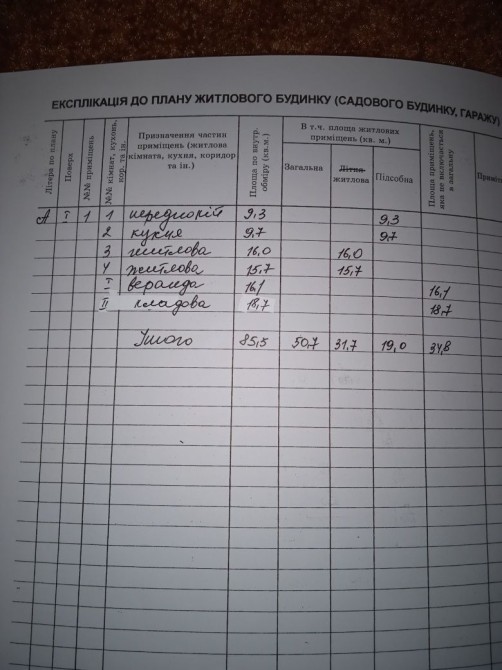 ЕКСПЛІКАЦІЯ ДО ПЛАНУ ЖИТЛОВОГО БУДИНКУ (САДОВОГО БУДИНКУ, ГАРАЖУ)
Літера по плану
Поверх
№№ приміщень
№№ кімнат, кухонь, кор. та ін.
Призначення частин приміщень (житлова кімната, кухня, коридор та ін.)
Площа по внутр. обміру (кв.м.)
В т.ч. площа житлових приміщень (кв. м.)
Загальна
Літня житлова
Підсобна
Площа приміщень, яка не включається в загальну
А І 1 1 передпокій 9,3 9,3
2 кухня 9,7 9,7
3 житлова 16,0 16,0
4 житлова 15,7 15,7
І веранда 16,1 16,1
ІІ кладова 18,7 18,7
Усього 85,5 50,7 31,7 19,0 34,8